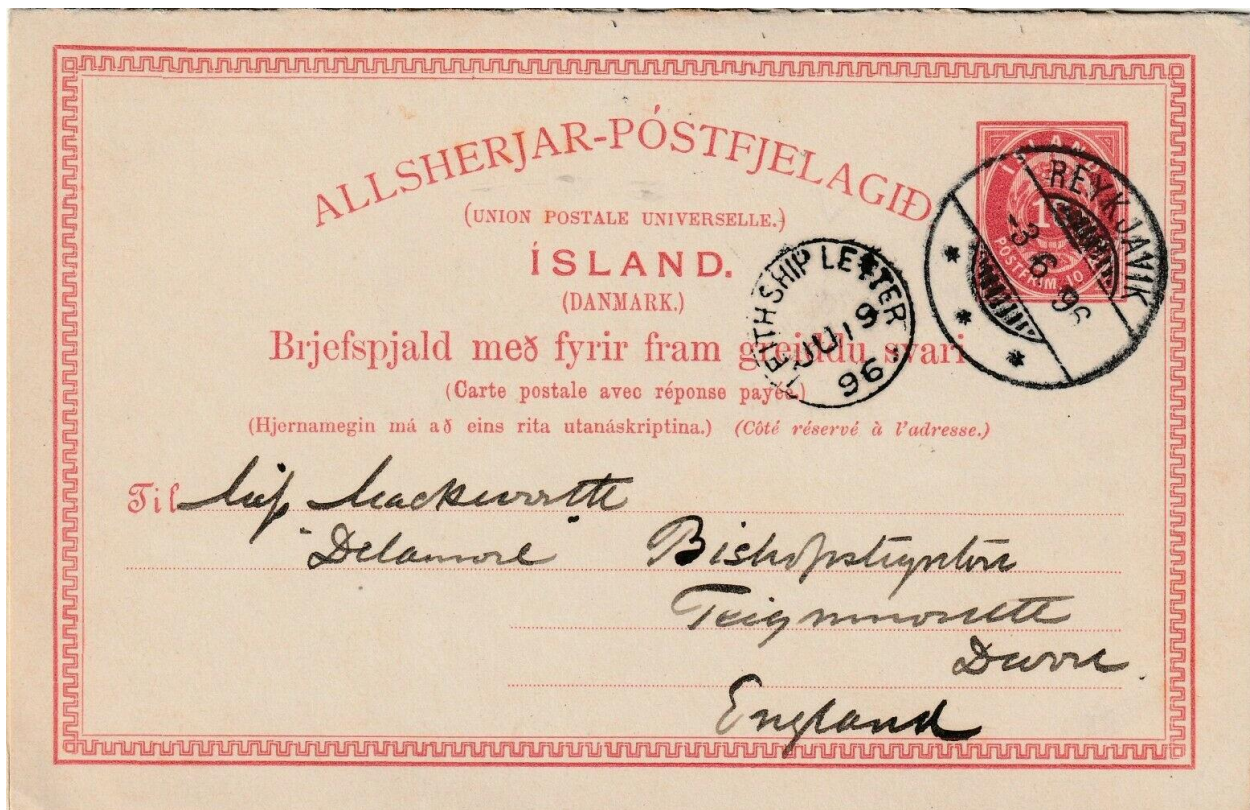 ALLSHERJAR-PÓSTFJELAGIÐ
(UNION POSTALE UNIVERSELLE.)
ÍSLAND.
(DANMARK.)
Brjefspjald með fyrir fram greiddu svari
(Carte postale avec réponse payée)
(Hjernamegin má að eins rita utanáskriptina.) (Côté réservé à l'adresse.)
ÍSLAND
POSTFRIM. 10
REYKJAVIK
-3 6 96
LEITH SHIP LETTER
JU 19
96
Til Miss Mackworth
"Delamore" Bishopsteignton
Teignmouth
Devon
England